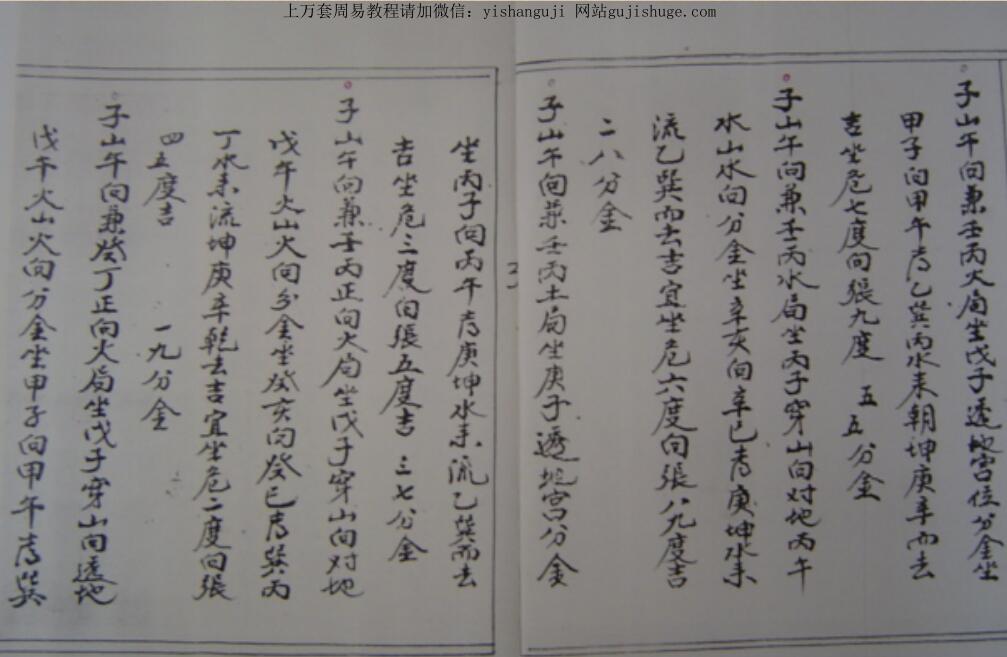 上万套周易教程请加微信：yishanguji 网站gujishuge.com
子山午向兼壬丙火局坐戊子透地宫位分金坐
甲子向甲午為乙巽丙水来朝坤庚辛而去
吉坐危七度向張九度 五五分金
子山午向兼壬丙水局坐丙子穿山向对地丙午
水山水向分金坐辛亥向辛巳為庚坤水来
流乙巽而去吉宜坐危六度向張八九度吉
二八分金
子山午向兼壬丙土局坐庚子透地宫分金
坐丙子向丙午為庚坤水来流乙巽而去
吉坐危三度向張五度吉 三七分金
子山午向兼壬丙正向火局坐戊子穿山向对地
戊午火山火向分金坐癸亥向癸巳為巽丙
丁水来流坤庚辛乾去吉宜坐危一度向張
四五度吉 一九分金
子山午向兼癸丁正向火局坐戊子穿山向透地
戊午火山火向分金坐甲子向甲午為巽